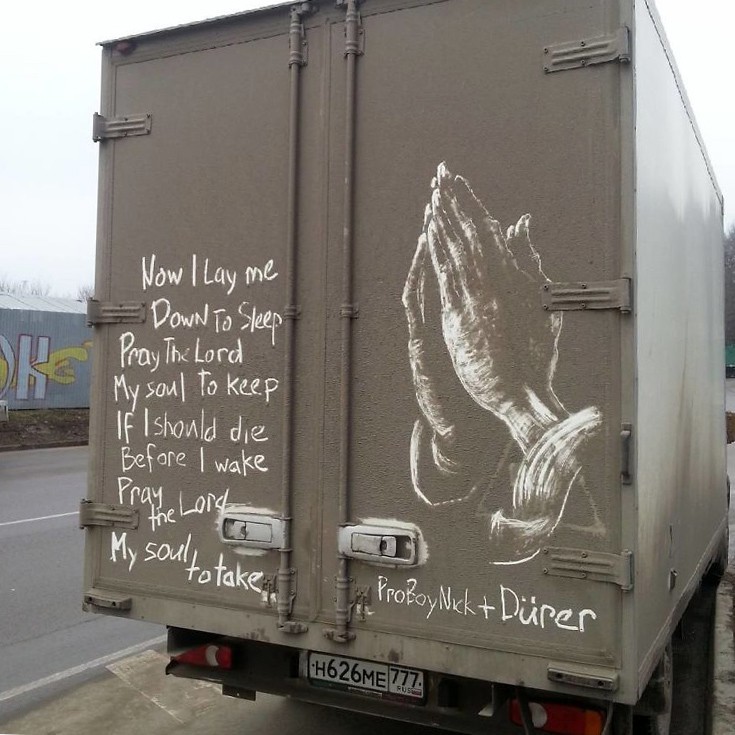 Now I Lay me
Down To Sleep
Pray The Lord
My soul To keep
If I should die
Before I wake
Pray
the Lord
My soul
to take
ProBoyNick + Dürer
Н626МЕ 777
RUS